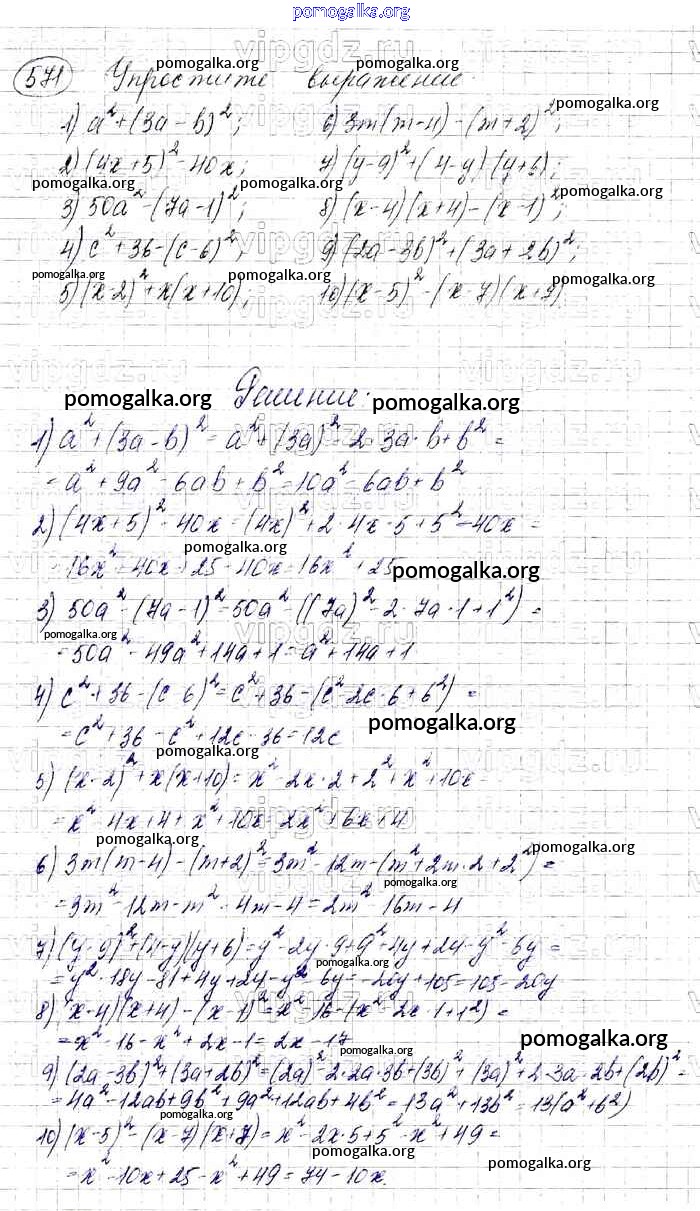 pomogalka.org
571 Упростите выражение
1) a² + (3a - b)²; 6) 3m(m-4) - (m+2)²;
2) (4x+5)² - 40x; 7) (y-9)² + (4-y)(y+6);
3) 50a² - (7a-1)²; 8) (x-4)(x+4) - (x-1)²;
4) c² + 36 - (c-6)²; 9) (2a-3b)² + (3a+2b)²;
5) (x-2)² + x(x+10); 10) (x-5)² - (x-7)(x+7)
Решение:
1) a² + (3a-b)² = a² + (3a)² - 2·3a·b + b² =
= a² + 9a² - 6ab + b² = 10a² - 6ab + b²
2) (4x+5)² - 40x = (4x)² + 2·4x·5 + 5² - 40x =
= 16x² + 40x + 25 - 40x = 16x² + 25
3) 50a² - (7a-1)² = 50a² - ((7a)² - 2·7a·1 + 1²) =
= 50a² - 49a² + 14a + 1 = a² + 14a + 1
4) c² + 36 - (c-6)² = c² + 36 - (c² - 2c·6 + 6²) =
= c² + 36 - c² + 12c - 36 = 12c
5) (x-2)² + x(x+10) = x² - 2x·2 + 2² + x² + 10x =
= x² - 4x + 4 + x² + 10x = 2x² + 6x + 4
6) 3m(m-4) - (m+2)² = 3m² - 12m - (m² + 2m·2 + 2²) =
= 3m² - 12m - m² - 4m - 4 = 2m² - 16m - 4
7) (y-9)² + (4-y)(y+6) = y² - 2y·9 + 9² + 4y + 24 - y² - 6y =
= y² - 18y - 81 + 4y + 24 - y² - 6y = -20y + 105 = 105 - 20y
8) (x-4)(x+4) - (x-1)² = x² - 16 - (x² - 2x·1 + 1²) =
= x² - 16 - x² + 2x - 1 = 2x - 17
9) (2a-3b)² + (3a+2b)² = (2a)² - 2·2a·3b + (3b)² + (3a)² + 2·3a·2b + (2b)² =
= 4a² - 12ab + 9b² + 9a² + 12ab + 4b² = 13a² + 13b² = 13(a² + b²)
10) (x-5)² - (x-7)(x+7) = x² - 2x·5 + 5² - x² + 49 =
= x² - 10x + 25 - x² + 49 = 74 - 10x.